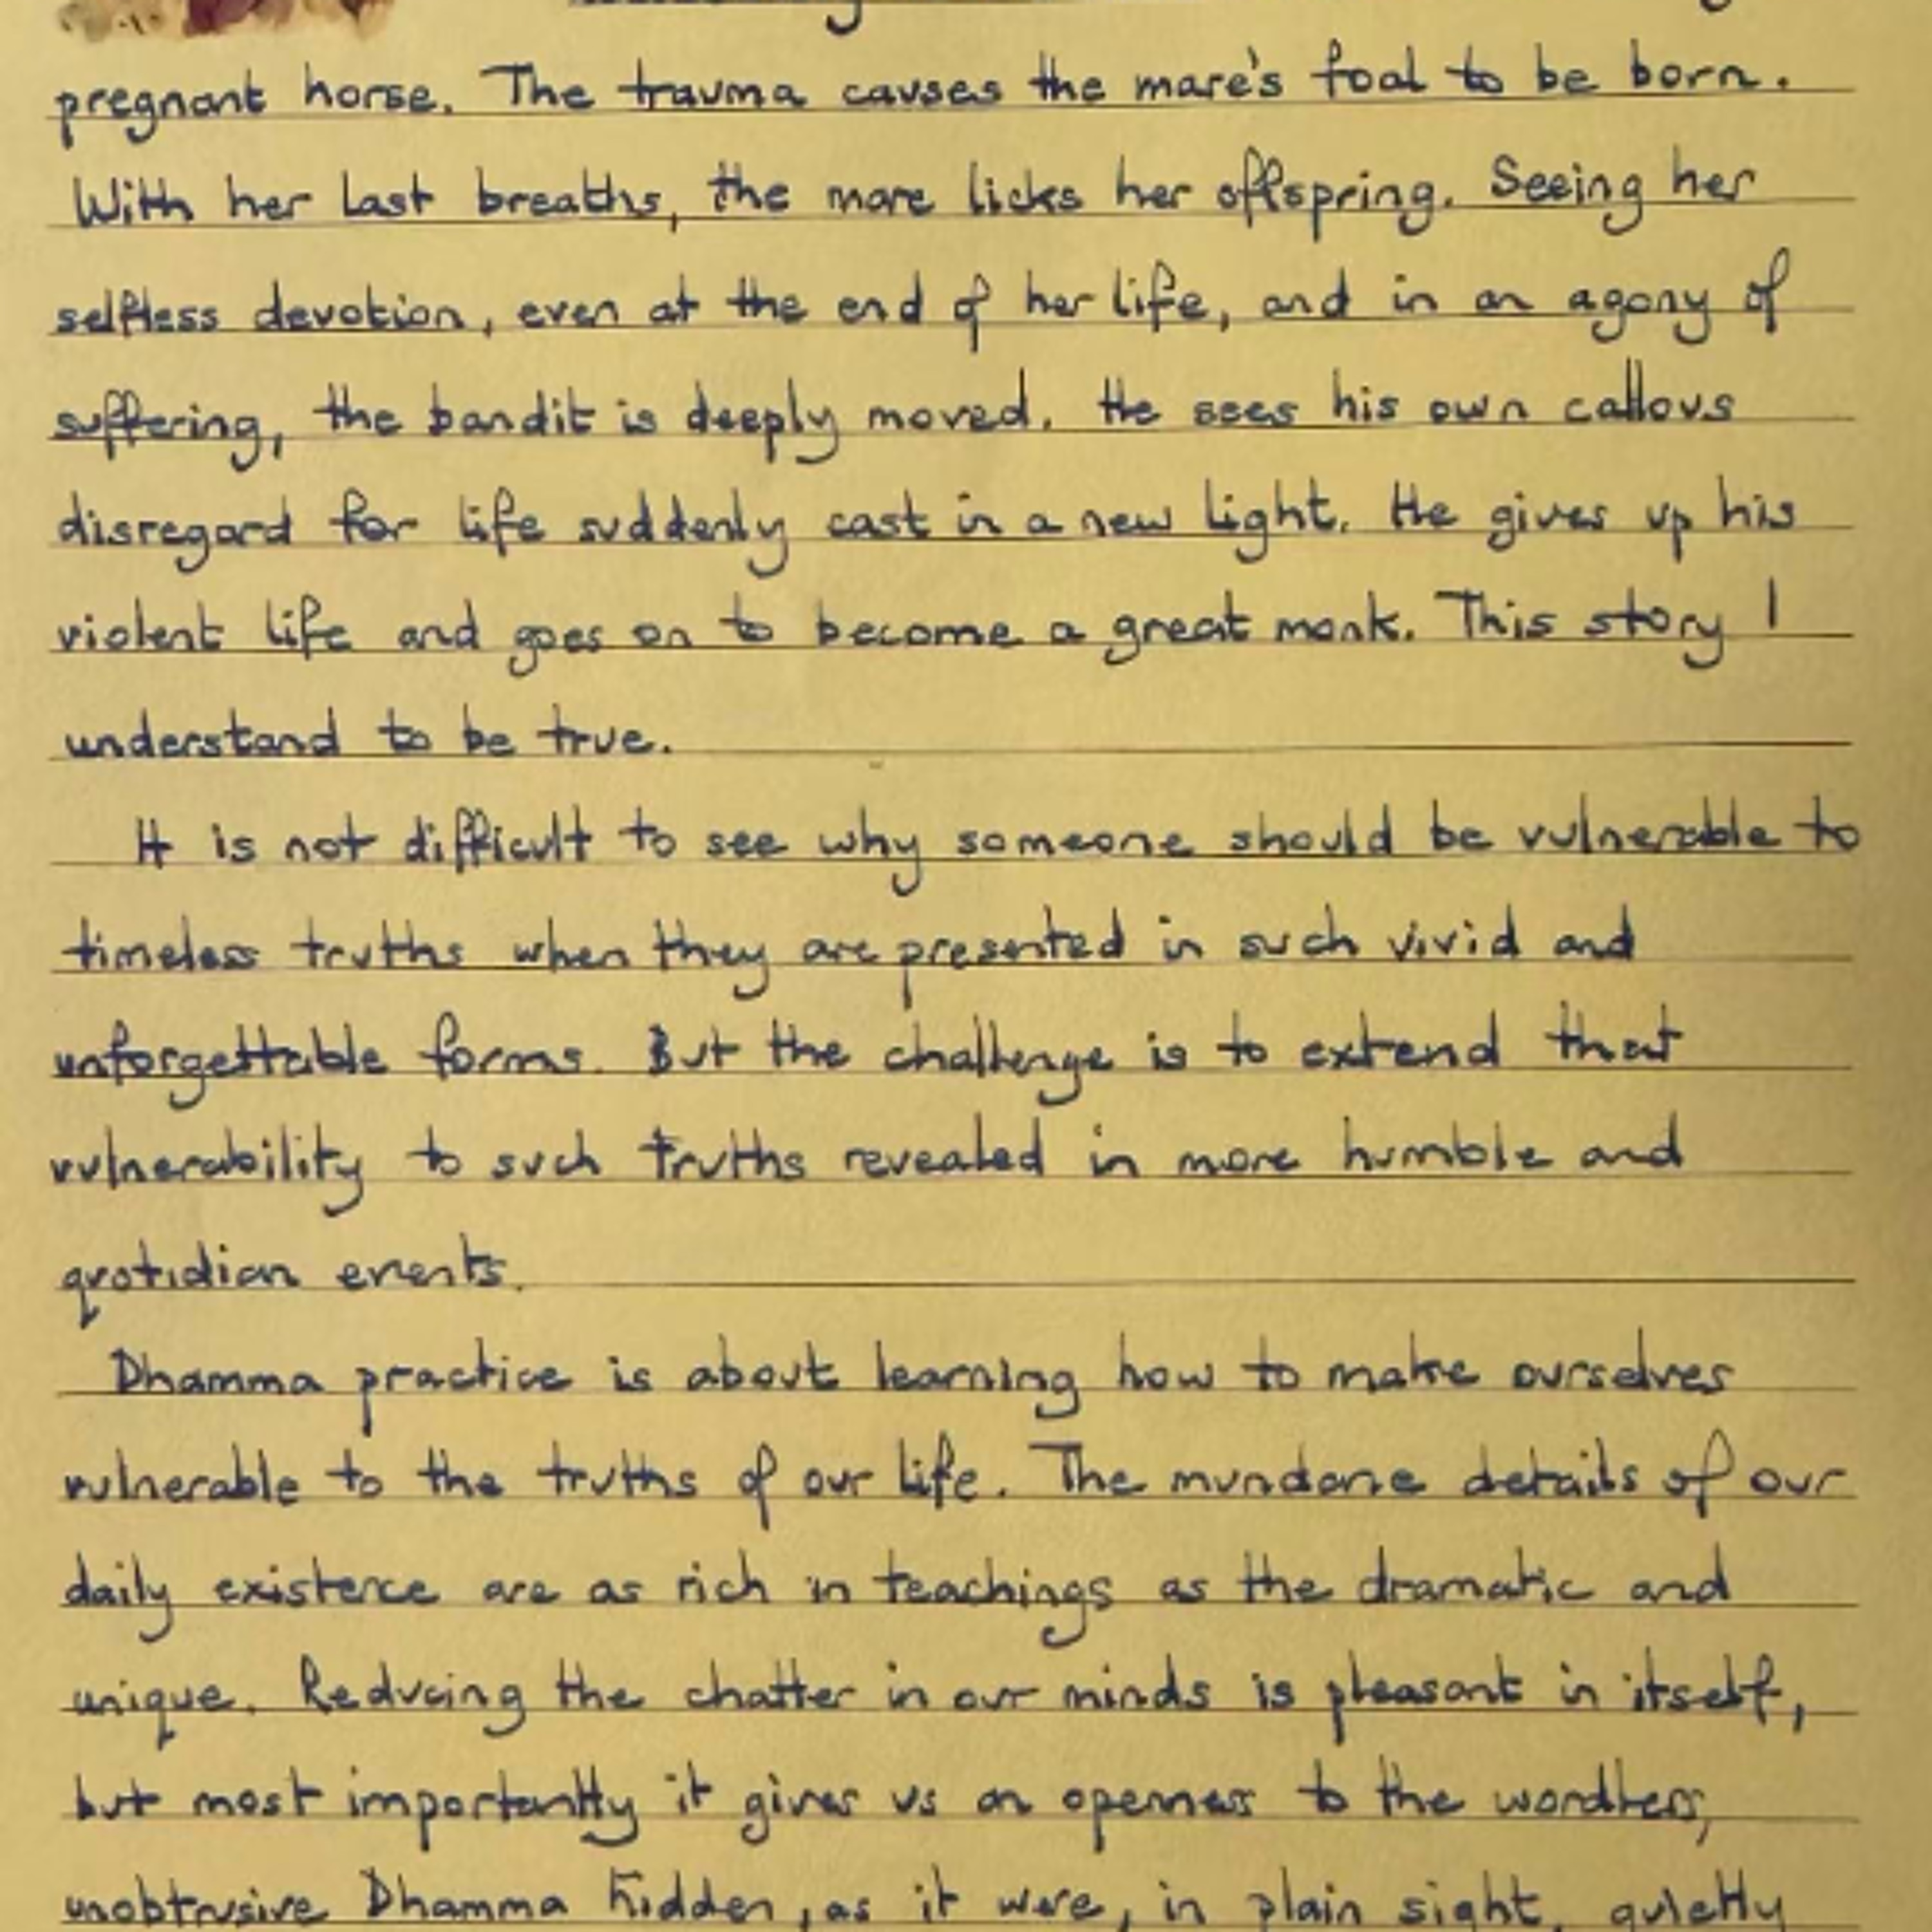 pregnant horse. The trauma causes the mare's foal to be born.
With her last breaths, the mare licks her offspring. Seeing her
selfless devotion, even at the end of her life, and in an agony of
suffering, the bandit is deeply moved. He sees his own callous
disregard for life suddenly cast in a new light. He gives up his
violent life and goes on to become a great monk. This story I
understand to be true.
It is not difficult to see why someone should be vulnerable to
timeless truths when they are presented in such vivid and
unforgettable forms. But the challenge is to extend that
vulnerability to such truths revealed in more humble and
quotidian events.
Dhamma practice is about learning how to make ourselves
vulnerable to the truths of our life. The mundane details of our
daily existence are as rich in teachings as the dramatic and
unique. Reducing the chatter in our minds is pleasant in itself,
but most importantly it gives us an openness to the wordless,
unobtrusive Dhamma hidden, as it were, in plain sight, quietly